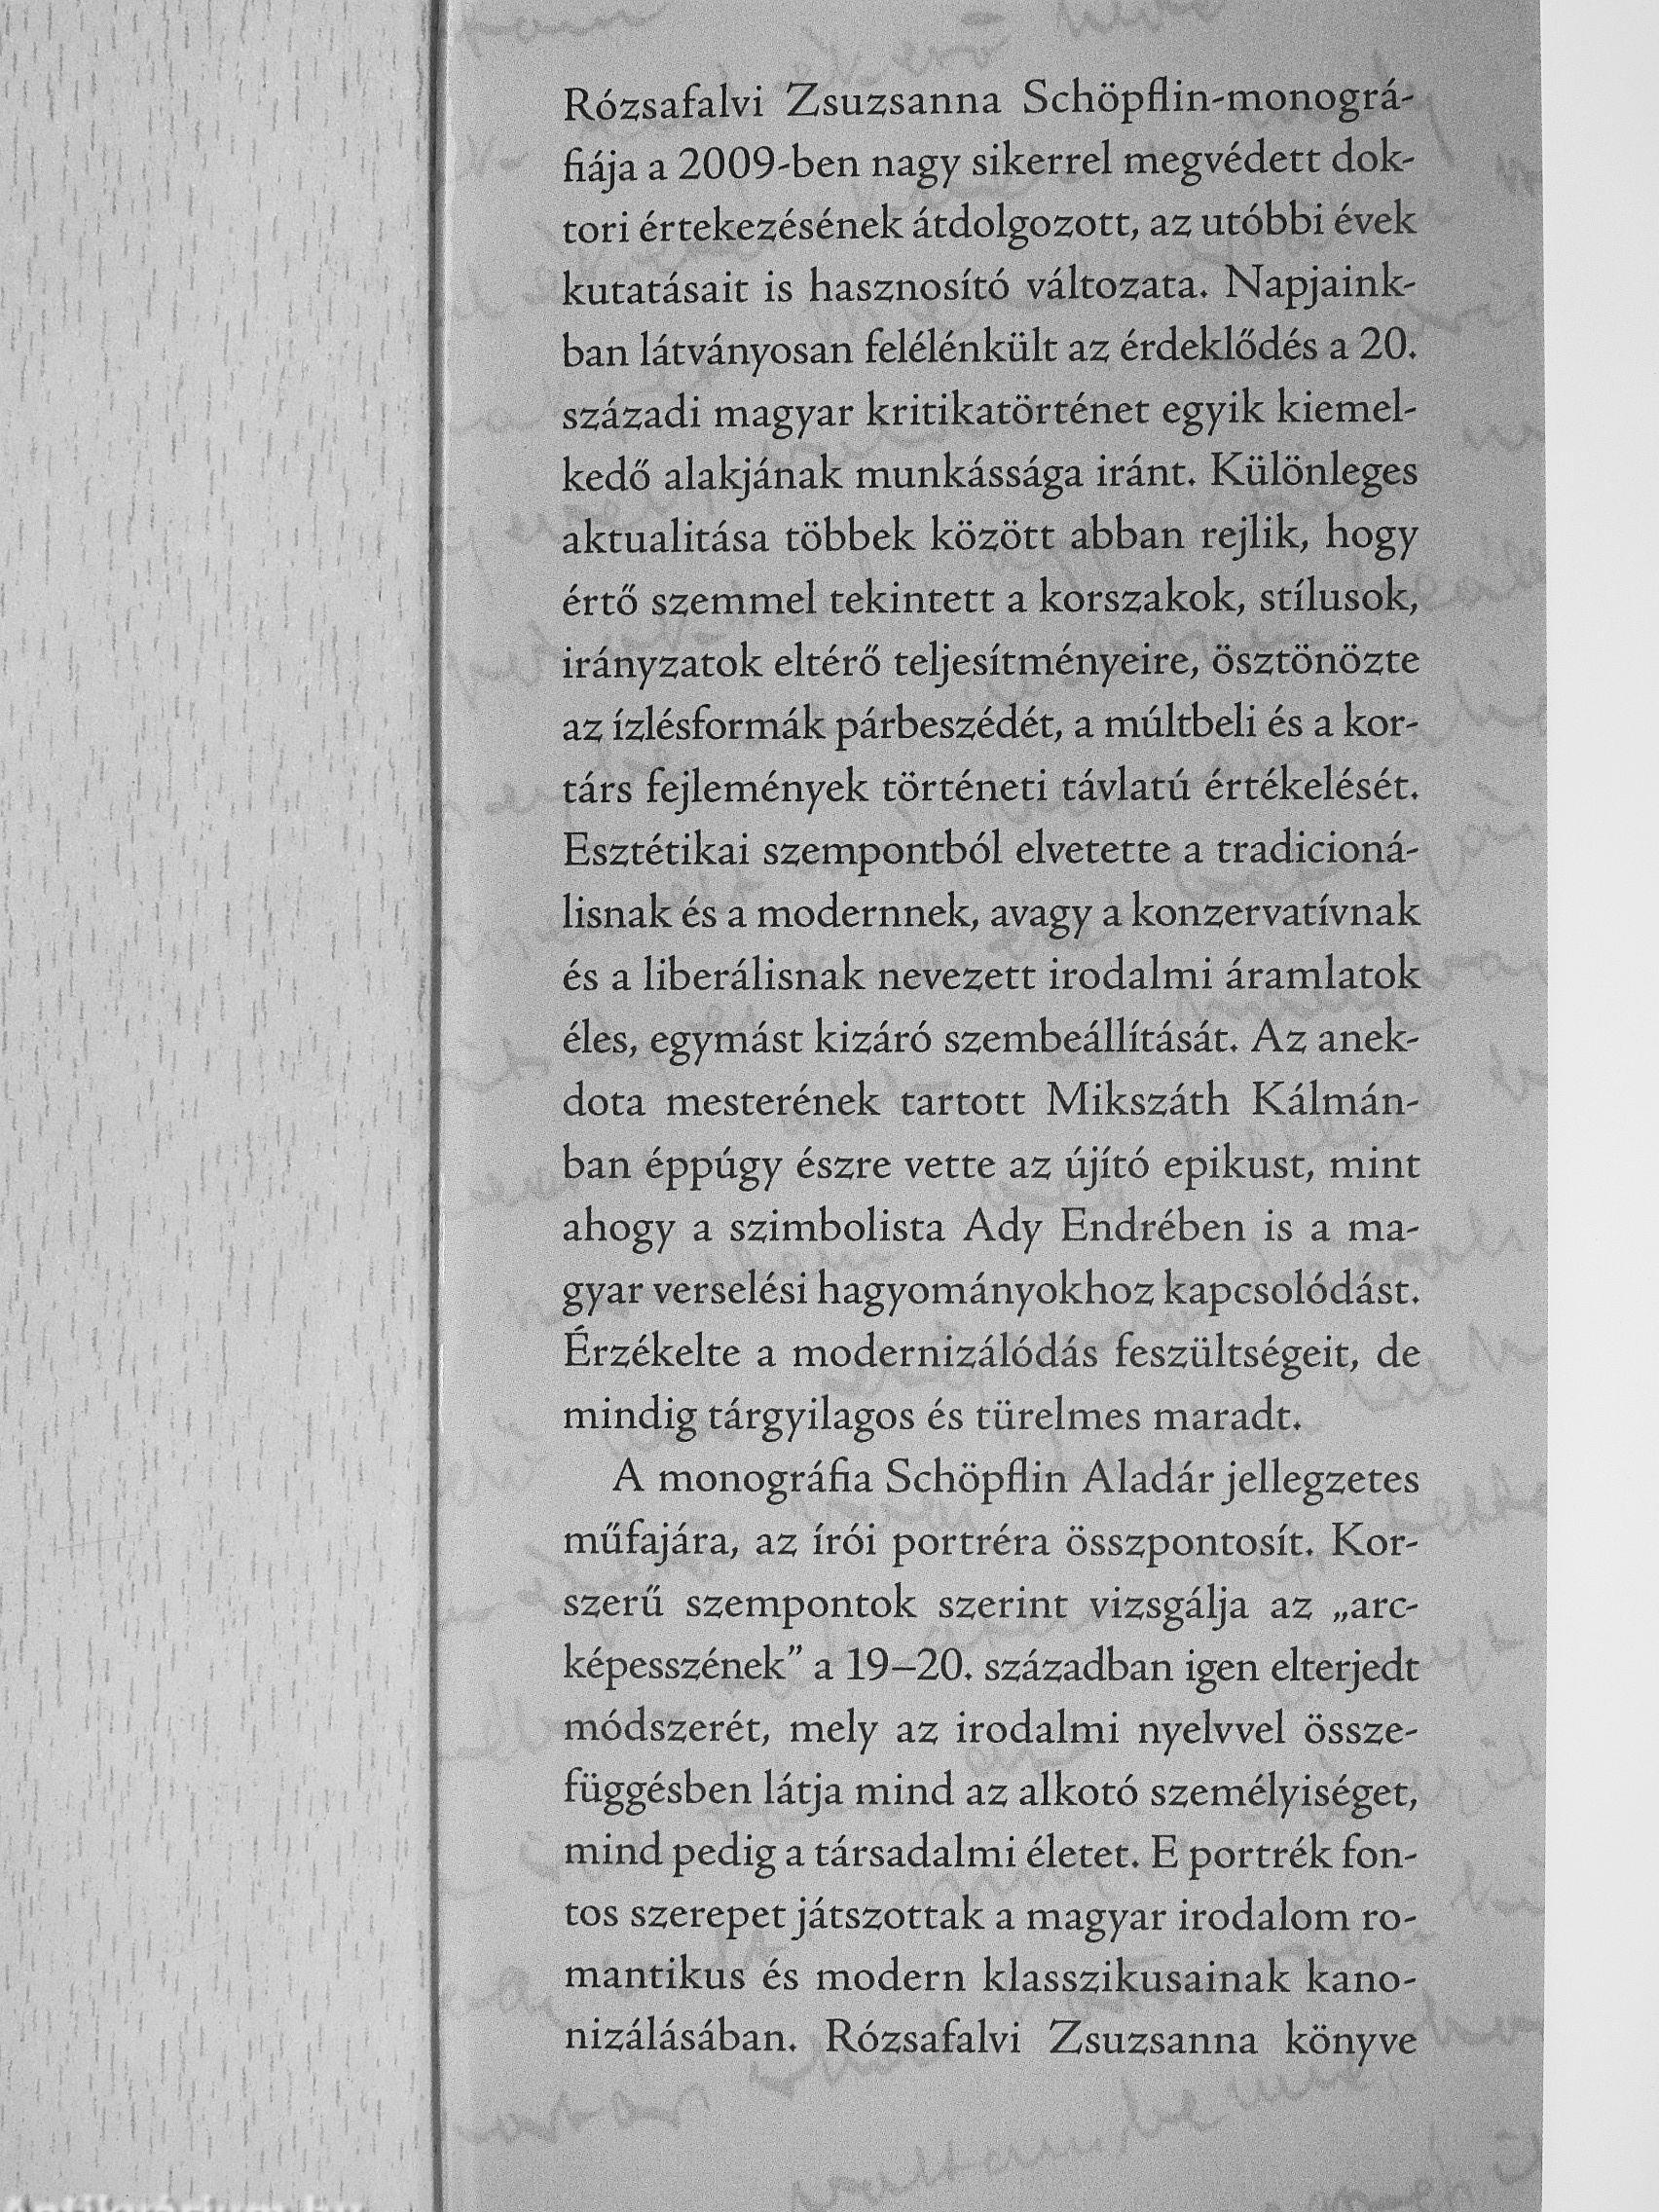 Rózsafalvi Zsuzsanna Schöpflin-monográ-
fiája a 2009-ben nagy sikerrel megvédett dok-
tori értekezésének átdolgozott, az utóbbi évek
kutatásait is hasznosító változata. Napjaink-
ban látványosan felélénkült az érdeklődés a 20.
századi magyar kritikatörténet egyik kiemel-
kedő alakjának munkássága iránt. Különleges
aktualitása többek között abban rejlik, hogy
értő szemmel tekintett a korszakok, stílusok,
irányzatok eltérő teljesítményeire, ösztönözte
az ízlésformák párbeszédét, a múltbeli és a kor-
társ fejlemények történeti távlatú értékelését.
Esztétikai szempontból elvetette a tradicioná-
lisnak és a modernnek, avagy a konzervatívnak
és a liberálisnak nevezett irodalmi áramlatok
éles, egymást kizáró szembeállítását. Az anek-
dota mesterének tartott Mikszáth Kálmán-
ban éppúgy észre vette az újító epikust, mint
ahogy a szimbolista Ady Endrében is a ma-
gyar verselési hagyományokhoz kapcsolódást.
Érzékelte a modernizálódás feszültségeit, de
mindig tárgyilagos és türelmes maradt.
A monográfia Schöpflin Aladár jellegzetes
műfajára, az írói portréra összpontosít. Kor-
szerű szempontok szerint vizsgálja az „arc-
képesszének” a 19–20. században igen elterjedt
módszerét, mely az irodalmi nyelvvel össze-
függésben látja mind az alkotó személyiséget,
mind pedig a társadalmi életet. E portrék fon-
tos szerepet játszottak a magyar irodalom ro-
mantikus és modern klasszikusainak kano-
nizálásában. Rózsafalvi Zsuzsanna könyve